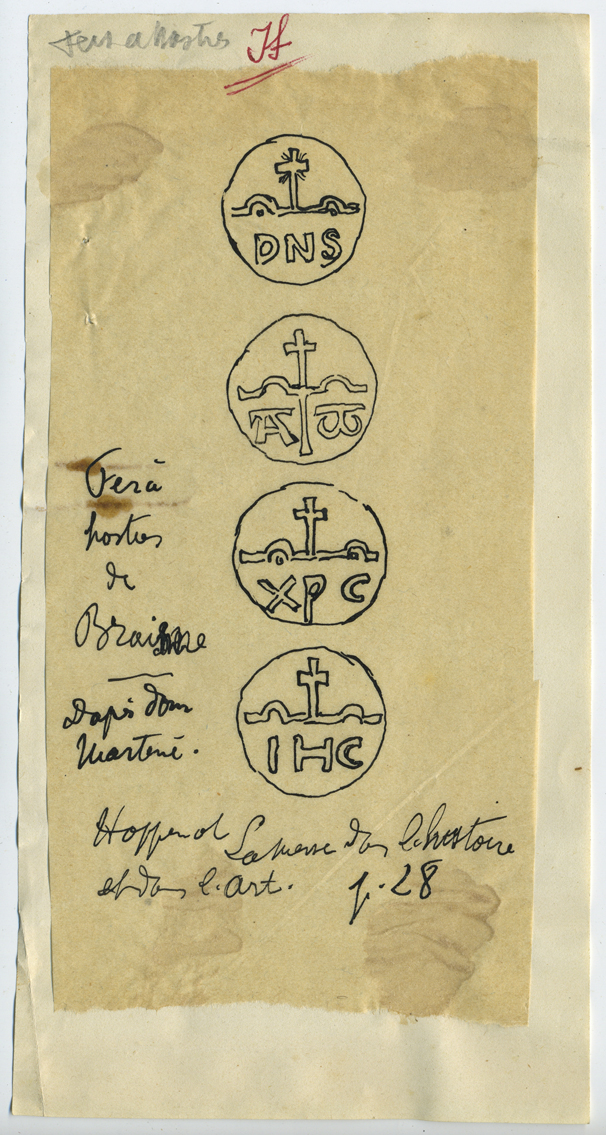 Fers à hosties
H
DNS
A ω
Fer à
hosties
de
XPC
Braisne
IHC
D'après dom
Martene.
Hoppenot La messe dans l'histoire
et dans l'art. p. 28